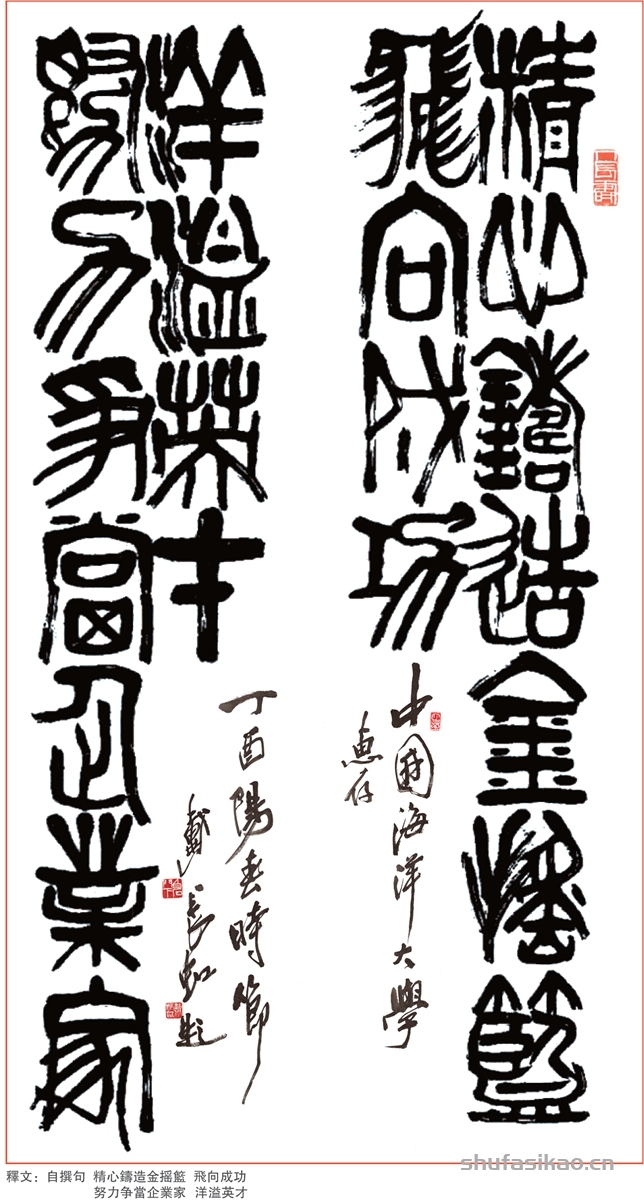 精心鑄造金摇籃
飛向成功
中國海洋大學
惠存
努力爭當企業家
洋溢英才
丁酉陽春時節
戴長虹題
釋文：自撰句 精心鑄造金摇籃 飛向成功
努力争當企業家 洋溢英才
shufasikao.cn